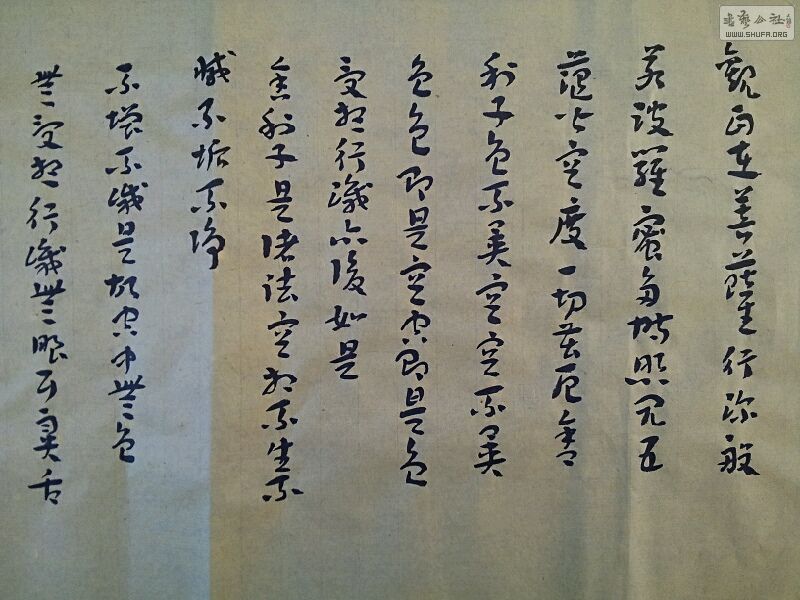 觀自在菩薩行深般
若波羅蜜多時照見五
蘊皆空度一切苦厄舍
利子色不異空空不異
色色即是空空即是色
受想行識亦復如是
舍利子是諸法空相不生不
滅不垢不淨
不增不減是故空中無色
無受想行識無眼耳鼻舌
書藝公社
WWW.SHUFA.ORG